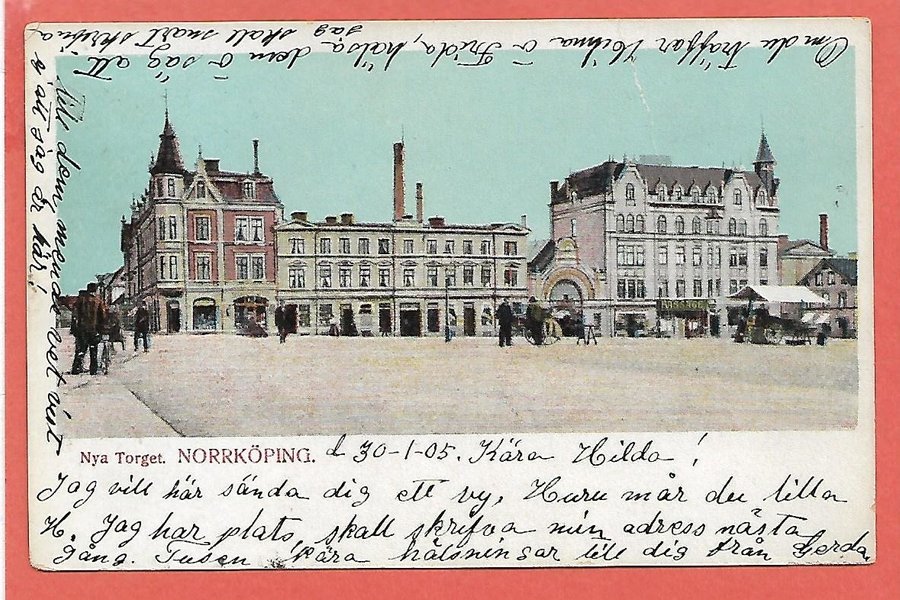 Nya Torget. NORRKÖPING. d 30-1-05. Kära Hilda!
Jag vill här sända dig ett vy, Huru mår du lilla
H. Jag har plats, skall skrifva min adress nästa
gång. Tusen kära hälsningar till dig från Gerda
Om du träffar Hilma o Frida, hälsa dem o säg att
jag skall snart skrifva
till dem, men de vet visst
att jag är här!